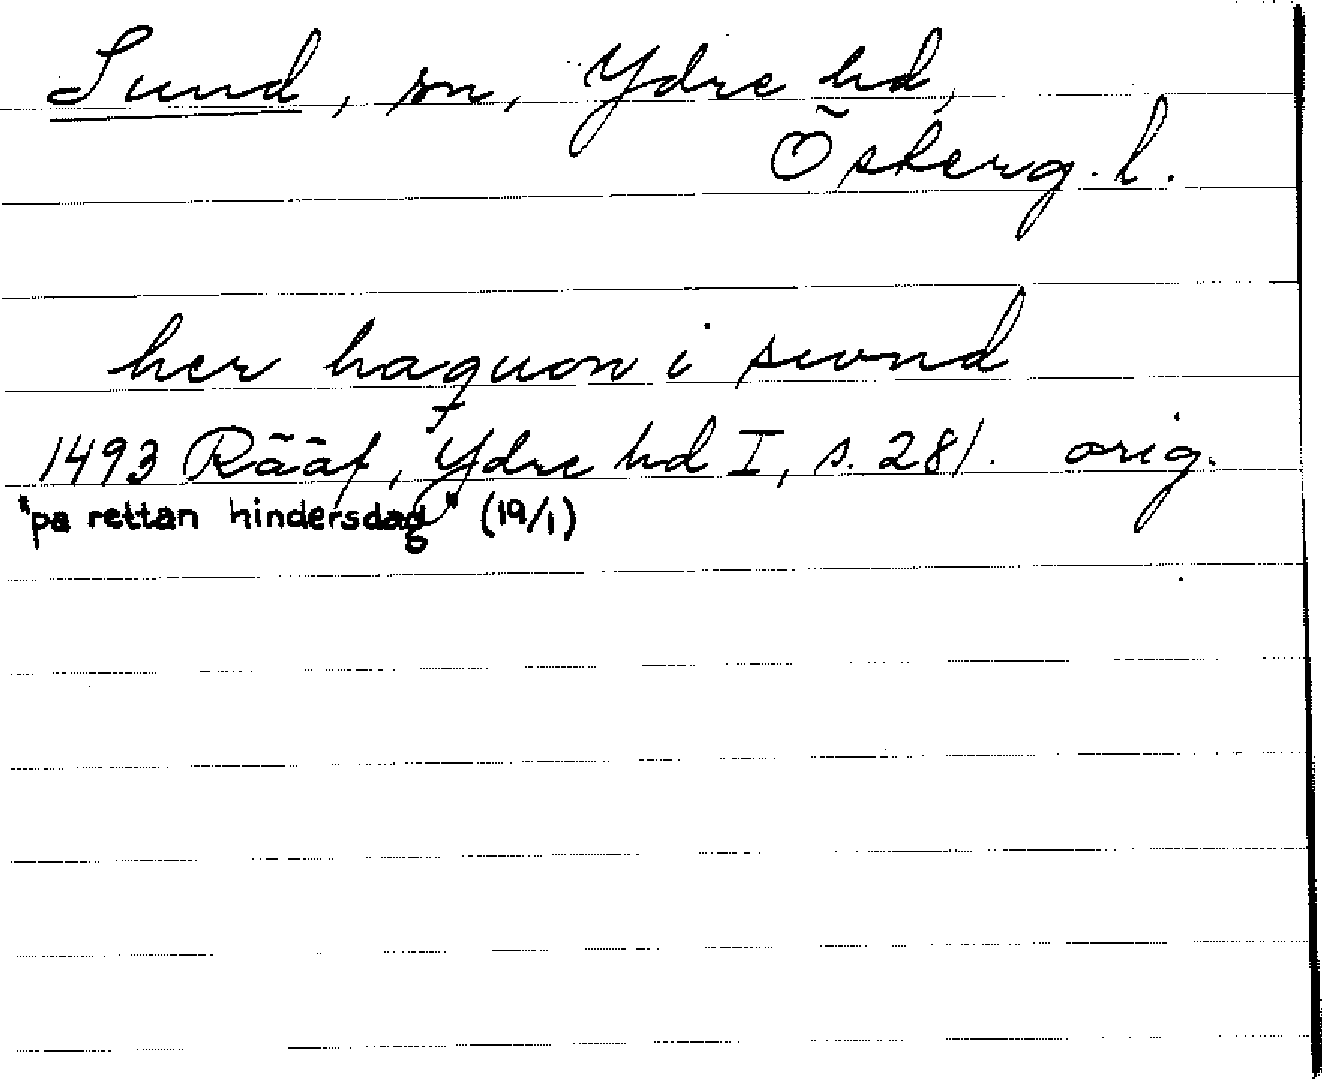 Sund, sn, Ydre hd,
Österg. l.
her haquon i swnd
1493 Rääf, Ydre hd I, s. 281. orig.
"pa rettan hindersdag" (19/1)